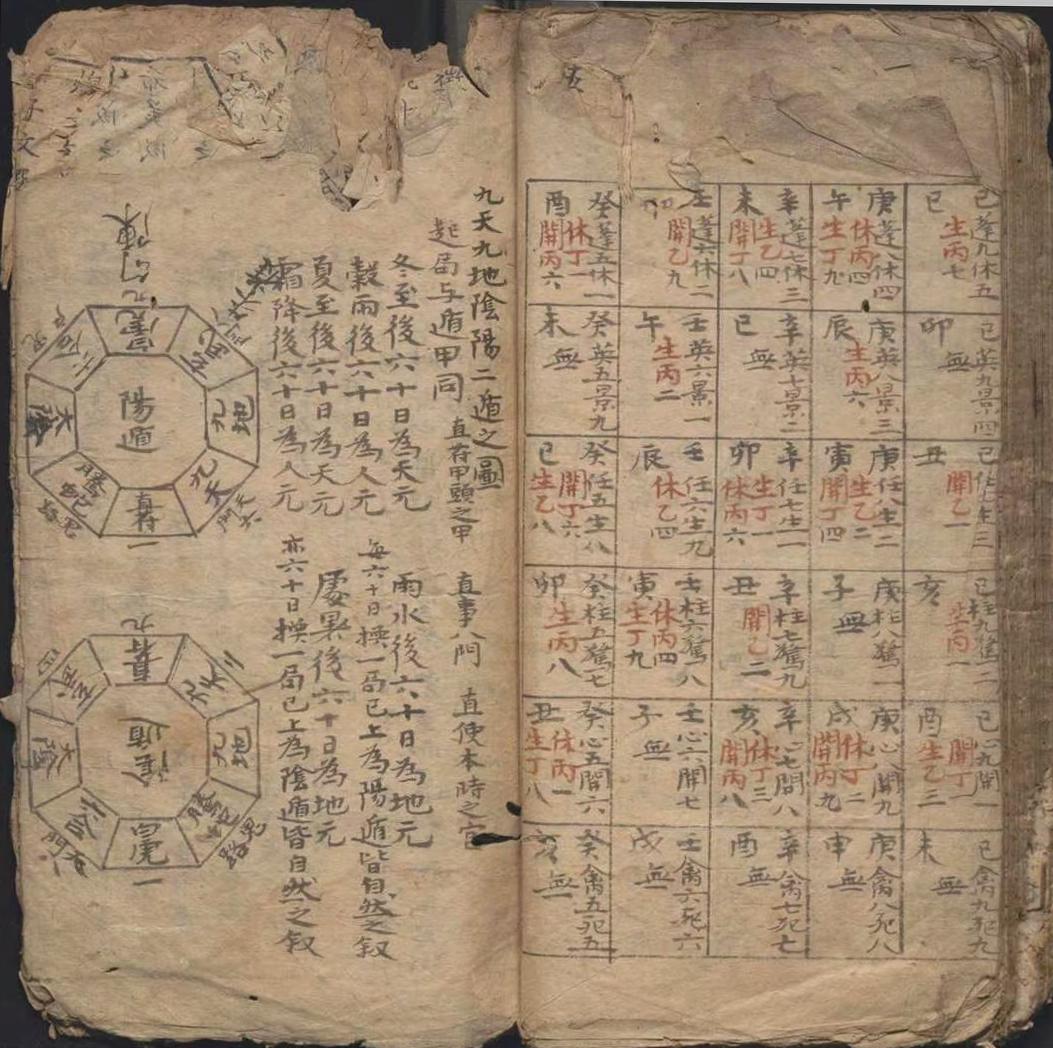 己蓬九休五
生丙七
巳
庚蓬八休四
休丙四
生丁九
午
辛蓬七休三
生乙四
開丁八
未
壬蓬六休二
開乙九
癸蓬五休一
休丁一
開丙六
酉
己英九景四
無
卯
庚英八景三
生丙六
辰
辛英七景二
無
巳
壬英六景一
生丙二
午
癸英五景九
無
未
己任九生三
開乙一
丑
庚任八生二
生乙二
開丁四
寅
辛任七生一
生丁一
休丙六
卯
壬任六生九
休乙四
辰
癸任五生八
開丁六
生乙八
巳
己柱九驚二
生丙一
亥
庚柱八驚一
無
子
辛柱七驚九
開乙二
丑
壬柱六驚八
休丙四
生丁九
寅
癸柱五驚七
生丙八
卯
己心九開一
開丁一
生乙三
酉
庚心八開九
休丁二
開丙九
戌
辛心七開八
休丁三
開丙八
亥
壬心六開七
無
子
癸心五開六
休丙一
生丁八
丑
己禽九死九
無
未
庚禽八死八
無
申
辛禽七死七
無
酉
壬禽六死六
無
戌
癸禽五死五
無
亥
九天九地陰陽二遁之圖
起局与遁甲同 直符甲頭之甲 直事八門 直使本時之宮
冬至後六十日為天元 雨水後六十日為地元
穀雨後六十日為人元 每六十日換一局已上為陽遁皆自然之叙
夏至後六十日為天元 處暑後六十日為地元
霜降後六十日為人元 亦六十日換一局已上為陰遁皆自然之叙
陽遁
九
勾陳
九地
九天
天門
直符
一
螣蛇
鬼路
太陰
六合
直符
九
九天
九地
螣蛇
鬼路
一
天門
六合
太陰